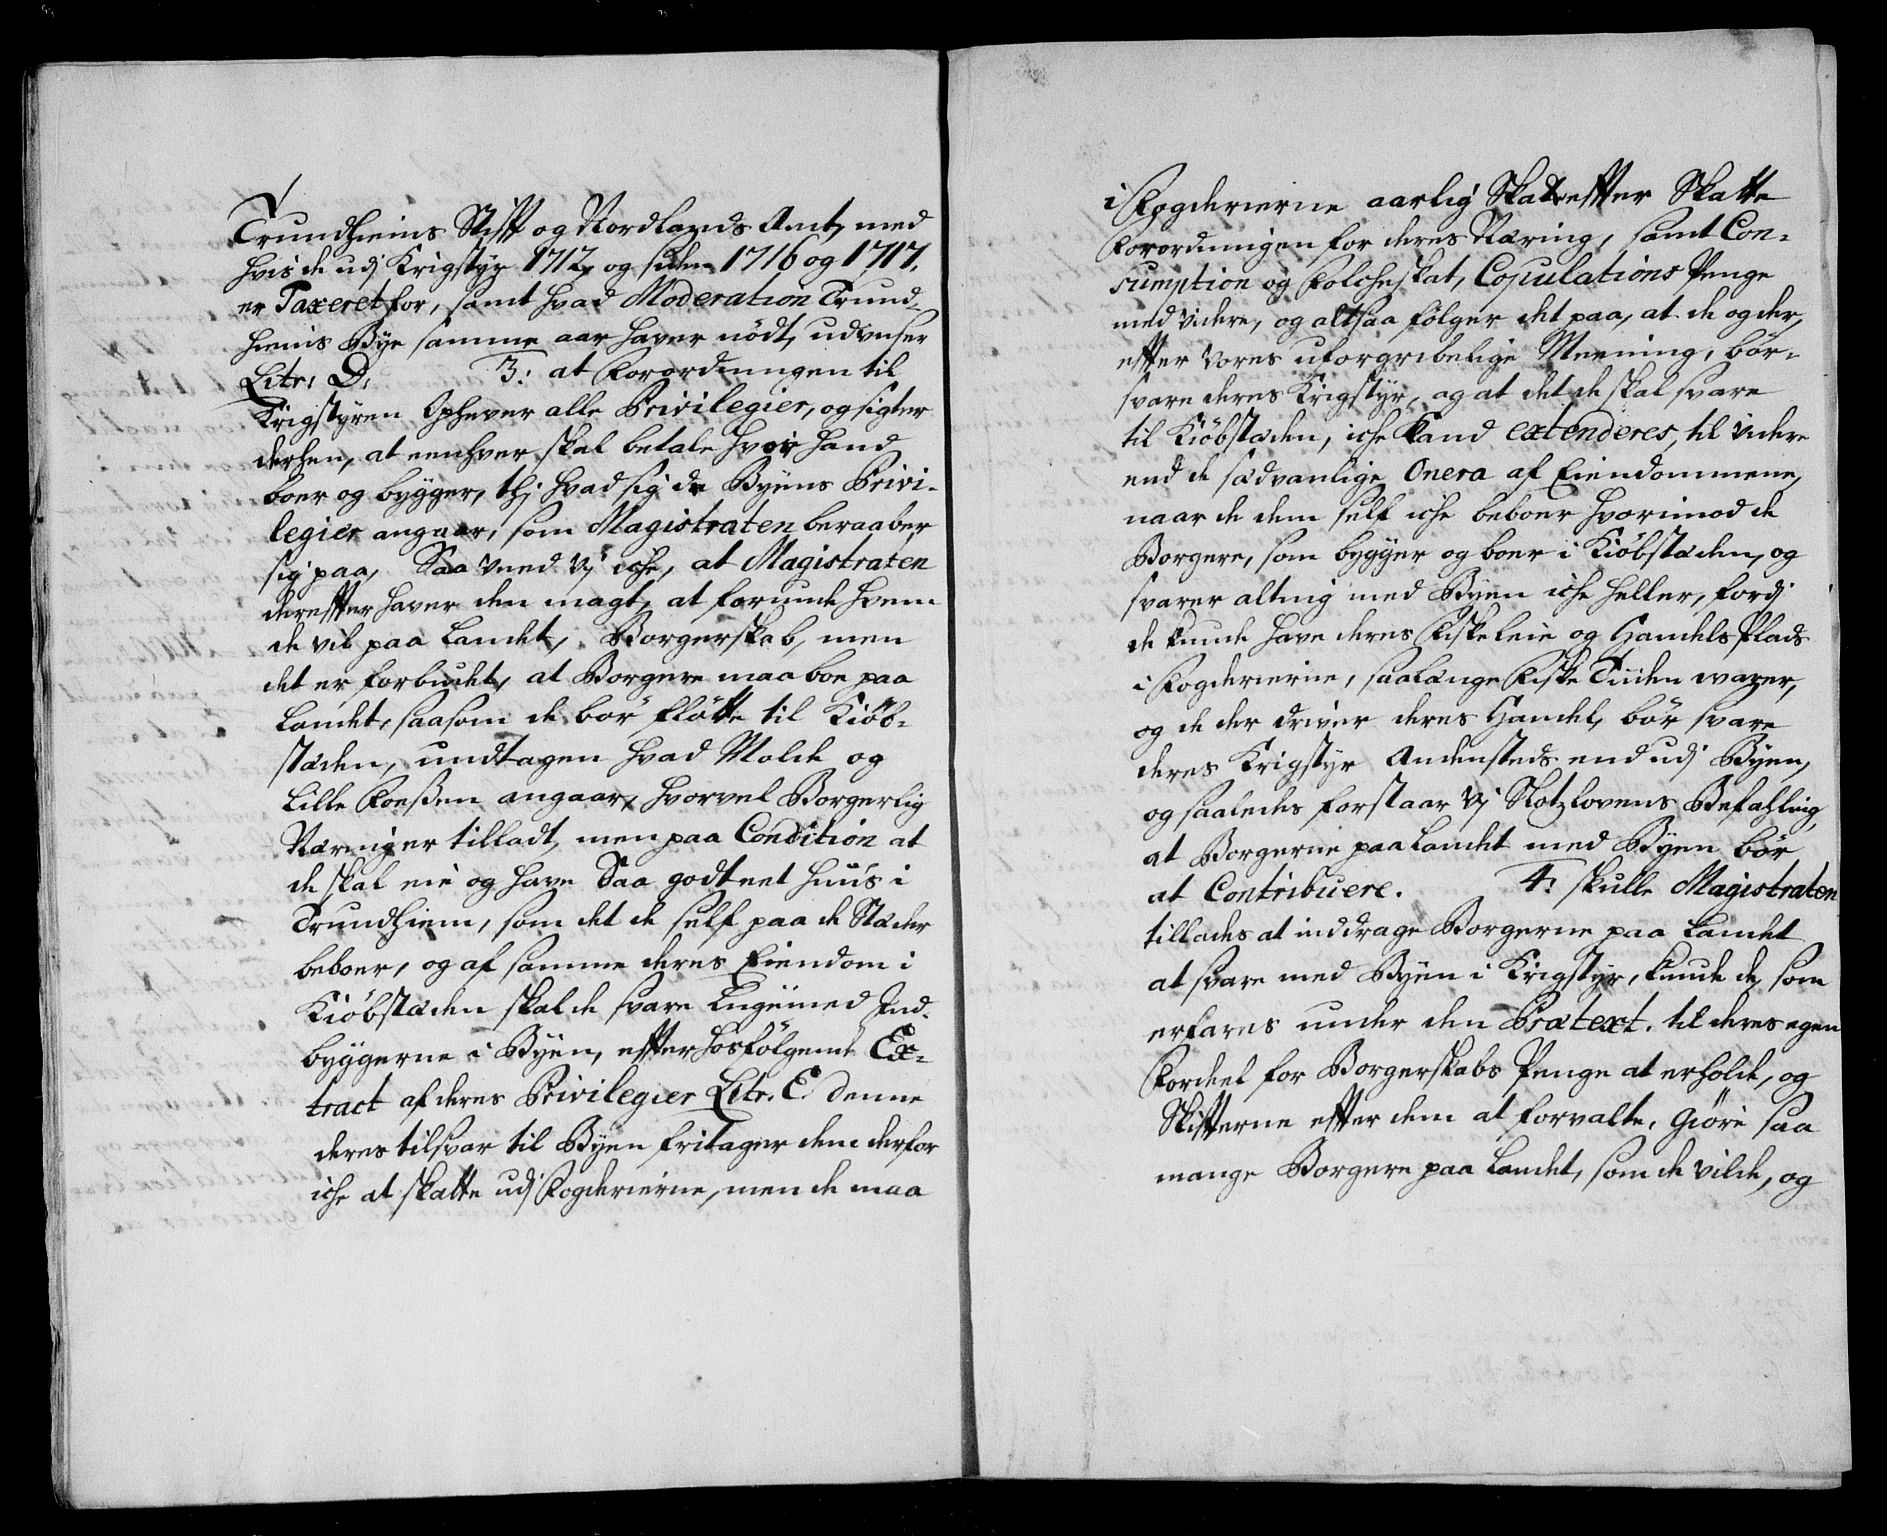 Trundhiems Stift og Nordlands Amt, med
hvis de udj Krigstyr 1712, og siden 1716 og 1717.
er Taxeret for, samt hvad Moderation Trund-
hiems Bye samme aar haver nödt, udviser
Litr: D: 3: at Forordningen til
Krigstyren Ophever alle Privilegier, og sigter
derhen, at eenhver skal betale hvor hand
boer og bygger, thj hvad sig de Byens Privi-
legier angaar, som Magistraten beraaber
sig paa, Saa veed Vj iche, at Magistraten
derefter haver den magt, at forunde hvem
de vil paa Landet, Borgerskab, men
det er forbudet, at Borgere maa boe paa
Landet, saasom de bör flötte til Kiöb-
stæden, undtagen hvad Molde og
Lille Foeßen angaar, hvorvel Borgerlig
Næring er tilladt, men paa Condition at
de skal eie og have Saa godt eet huus i
Trundhiem, som det de self paa de Stæder
beboer, og af samme deres Eiendom i
Kiöbstæden skal de svare Lige med Ind-
byggerne i Byen, efter hosfölgende Ex-
tract af deres Privilegier Litr. E. denne
deres tilsvar til Byen fritager dem derfor
iche at skatte udj Fogderierne, men de maa
i Fogderierne aarlig Skat efter Skatte
Forordningen for deres Næring, samt Con-
sumption og Folcheskat, Copulations Penge
med videre, og altsaa fölger det paa, at de og der,
efter vores uforgribelige Meening, bör
svare deres Krigstyr, og at det de skal svare
til Kiöbstæden, iche kand extenderes, til videre
end de sædvanlige Onera af Eiendommene,
naar de dem self iche beboer hvorimod de
Borgere, som bygger og boer i Kiöbstæden, og
svarer alting med Byen iche heller, fordj
de kunde have deres Fiskeleie og Handels Plads
i Fogderierne, saalænge Fiske Tiiden warer,
og de der driver deres Handel, bör svare
deres Krigstyr Andensteds end udj Byen,
og saaledes forstaar Vj Slotzlovens Befahling
at Borgerne paa Landet med Byen bör
at Contribuere. 4: skulle Magistraten
tillades at inddrage Borgerne paa Landet
at svare med Byen i Krigstyr, kunde de, som
erfares under den Prætext. til deres egen
Fordeel for Borgerskabs Penge at erholde, og
Skifterne efter dem at forvalte, Giöre saa
mange Borgere paa Landet, som de vilde, og